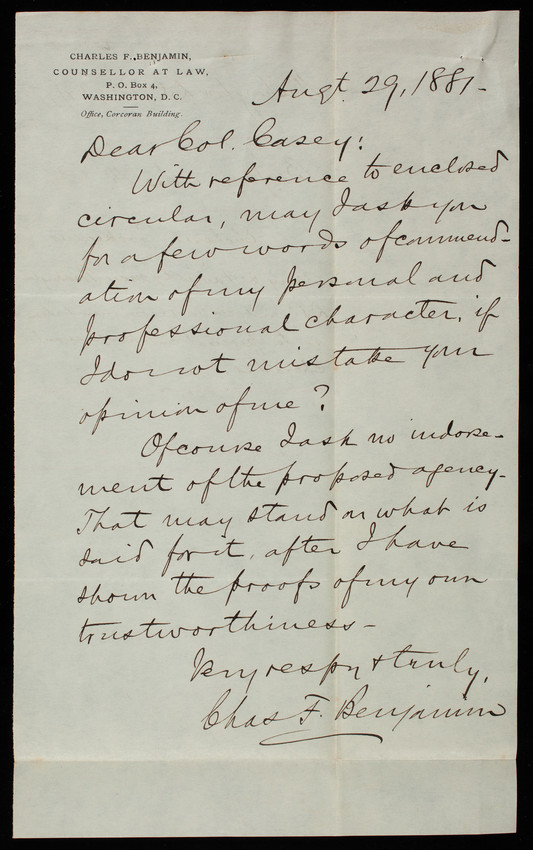 CHARLES F. BENJAMIN,
COUNSELLOR AT LAW,
P. O. Box 4,
WASHINGTON, D. C.
Office, Corcoran Building.
Augt. 29, 1881-
Dear Col. Casey:
With reference to enclosed
circular, may I ask you
for a few words of commend-
ation of my personal and
professional character, if
I do not mistake your
opinion of me?
Of course I ask no indorse-
ment of the proposed agency.
That may stand on what is
said for it, after I have
shown the proofs of my own
trustworthiness-
Very respy & truly,
Chas F. Benjamin